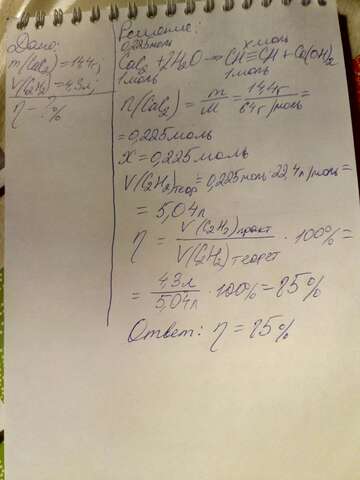 Дано:
m(CaC₂) = 14,4г;
V(C₂H₂) = 4,3л;
η - ?%
Решение:
0,225моль x моль
CaC₂ + H₂O → CH≡CH + Ca(OH)₂
1моль 1моль
n(CaC₂) = m/M = 14,4г/64г/моль =
= 0,225моль
x = 0,225моль
V(C₂H₂)теор = 0,225моль · 22,4л/моль =
= 5,04л
η = V(C₂H₂)практ/V(C₂H₂)теорет · 100% =
= 4,3л/5,04л · 100% = 85%
Ответ: η = 85%